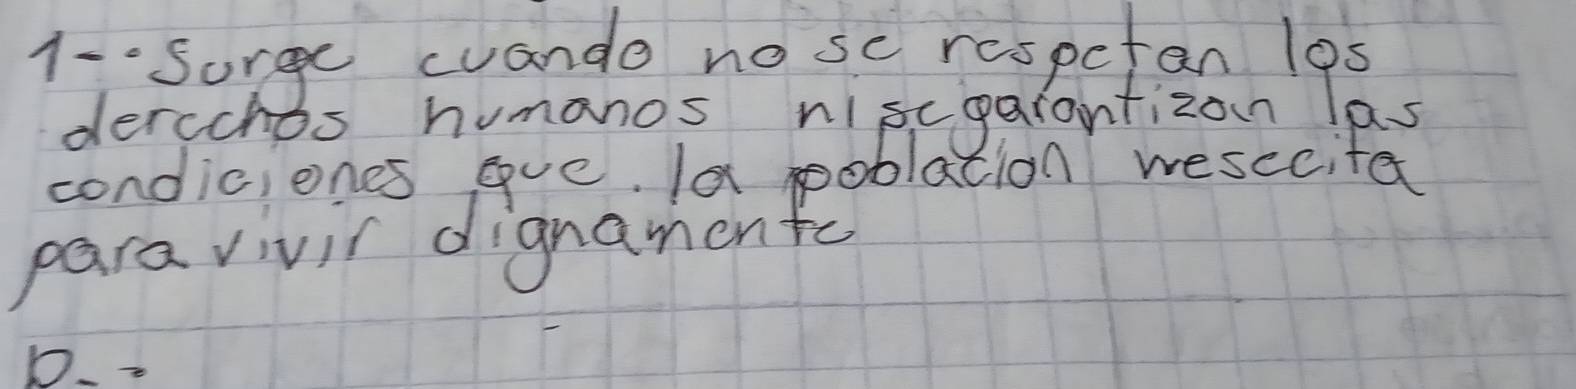 1-. Surge cuando no se respectan los
derechos humanos ni se garantizan las
condiciones que. la poblacion wesecita
para vivir dignamente
D.-